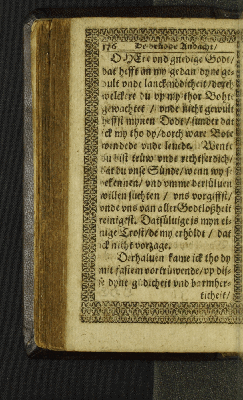 176 Bedröuede Andacht/
O HEre vnd gnedige Godt/
dat heffst an my gedan dyne ge-
dult vnde lanckmödicheit / dorch
welckere du vp my thor Bothe
gewachtet / vnde nicht gewult
heffst mynen Dodt / sunder dat
ick my tho dy / dorch ware Bote
wendede vnde leuede. Wente
du bist trüw vnde rechtferdich /
dat du vnse Sünde / wenn wy se
bekennen / vnd vmme
willen söchten / vns vorgiffst /
vnde vns van aller Godtlosicheit
reinigest. Datsüluige is myn ei-
nige Trost / de my erhöldt / dat
ick nicht vorzage.
Derhaluen kame ick tho dy
mit fastem vortrüwende / vp dis-
se dyne güdicheit vnd barmher-
ticheit /